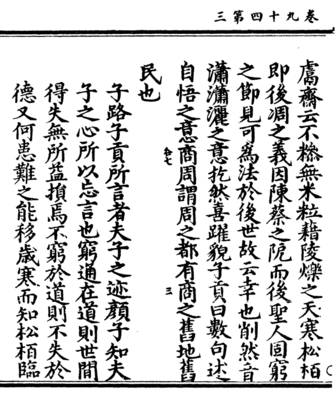 卷九十四第三
鬳齋云不糝無米粒藉陵爍之天寒松栢
即後凋之義因陳蔡之阨而後聖人固窮
之節見可為法於後世故云幸也削然音
瀟瀟灑之意扢然喜躍貌子貢曰數句述
自悟之意商周謂周之都有商之舊地舊
民也
子路子貢所言者夫子之迹顏子知夫
子之心所以忘言也窮通在道則世間
得失無所益損焉不窮於道則不失於
德又何患難之能移歲寒而知松栢臨